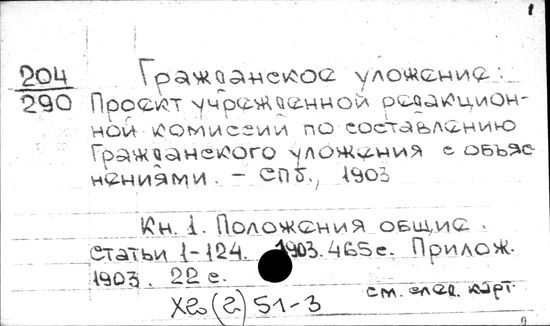 1
204
290
Гражданское уложение:
Проект учрежденной редакцион-
ной комиссии по составлению
Гражданского уложения с объяс-
нениями. - СПб., 1903
Кн. 1. Положения общие.
статьи 1-124. 1903. 465с. Прилож.
1903. 22 с.
Хв(2)51-3
см. след. карт.